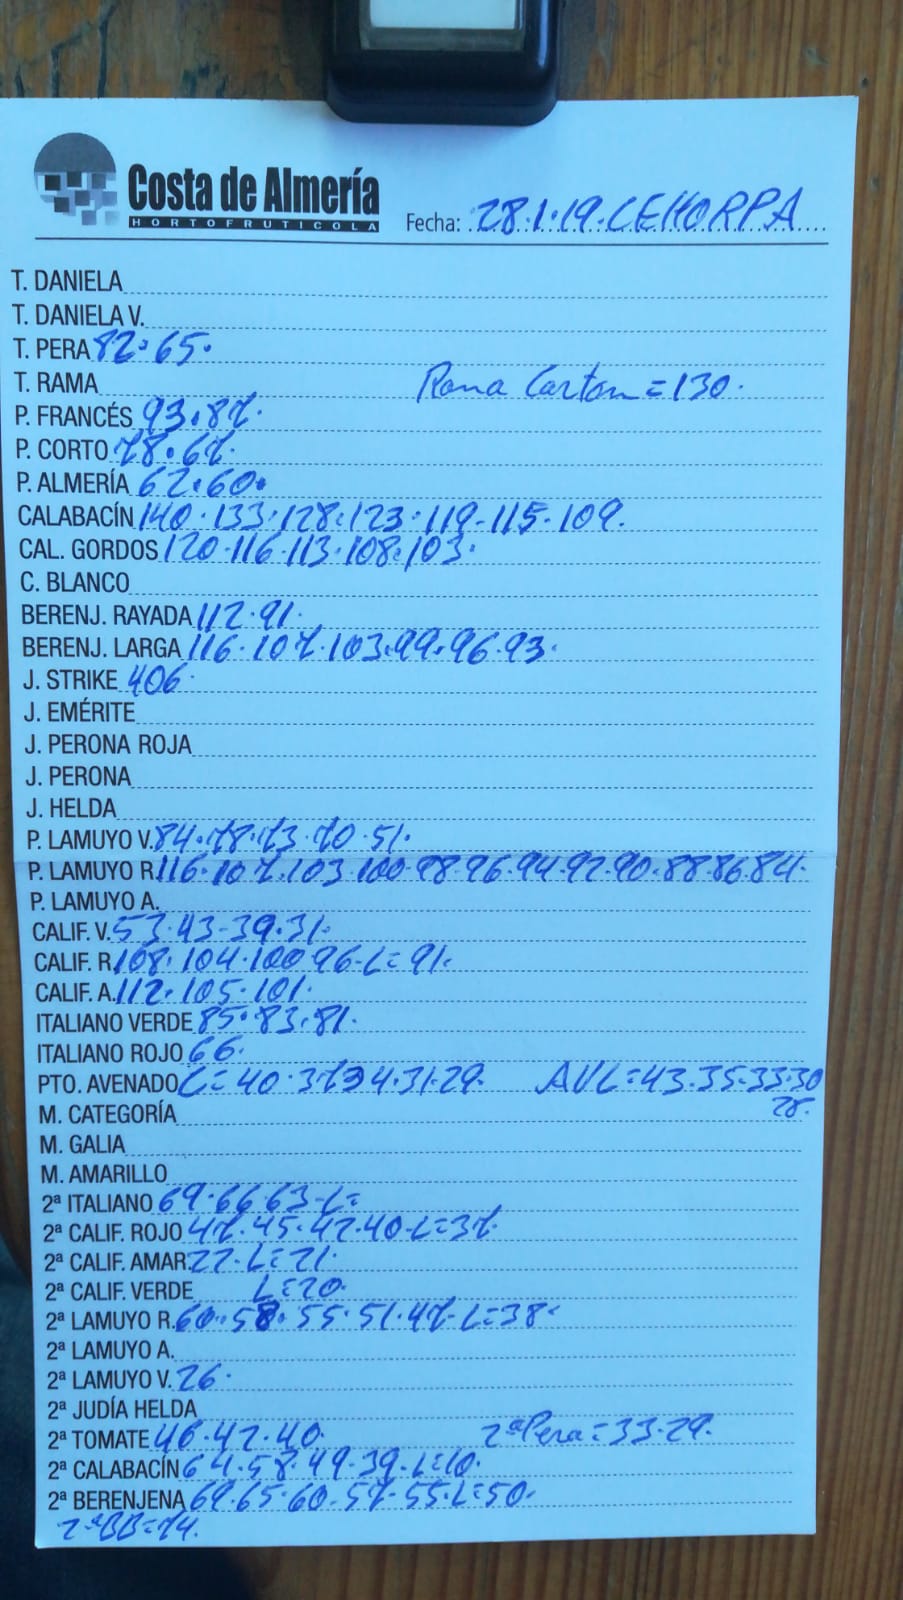 Costa de Almería
HORTOFRUTICOLA
Fecha: 28.1.19.CEHORPA
T. DANIELA
T. DANIELA V.
T. PERA 82.65.
T. RAMA Rama Carton=130.
P. FRANCÉS 93.87.
P. CORTO 78.67.
P. ALMERÍA 62.60.
CALABACÍN 140.133.128.123.119.115.109.
CAL. GORDOS 120.116.113.108.103.
C. BLANCO
BERENJ. RAYADA 112.91.
BERENJ. LARGA 116.107.103.99.96.93.
J. STRIKE 406.
J. EMÉRITE
J. PERONA ROJA
J. PERONA
J. HELDA
P. LAMUYO V. 84.78.73.70.51.
P. LAMUYO R. 116.107.103.100.98.96.94.92.90.88.86.84.
P. LAMUYO A.
CALIF. V. 53.43-39.31.
CALIF. R. 108.104.100 96-L=91.
CALIF. A. 112.105.101.
ITALIANO VERDE 85.83.81.
ITALIANO ROJO 66.
PTO. AVENADO L=40.37.34.31.29. AVL=43.35.33.30
28.
M. CATEGORÍA
M. GALIA
M. AMARILLO
2ª ITALIANO 69.66 63-L=
2ª CALIF. ROJO 47.45.42.40-L=37.
2ª CALIF. AMAR. 22.L=21.
2ª CALIF. VERDE L=20.
2ª LAMUYO R. 60.58.55.51.47-L=38.
2ª LAMUYO A.
2ª LAMUYO V. 26.
2ª JUDÍA HELDA
2ª TOMATE 46.42.40. 2ªPera=33.29.
2ª CALABACÍN 64.58.49.39.L=10.
2ª BERENJENA 69.65.60.57.55.L=50.
2ªBB=74.